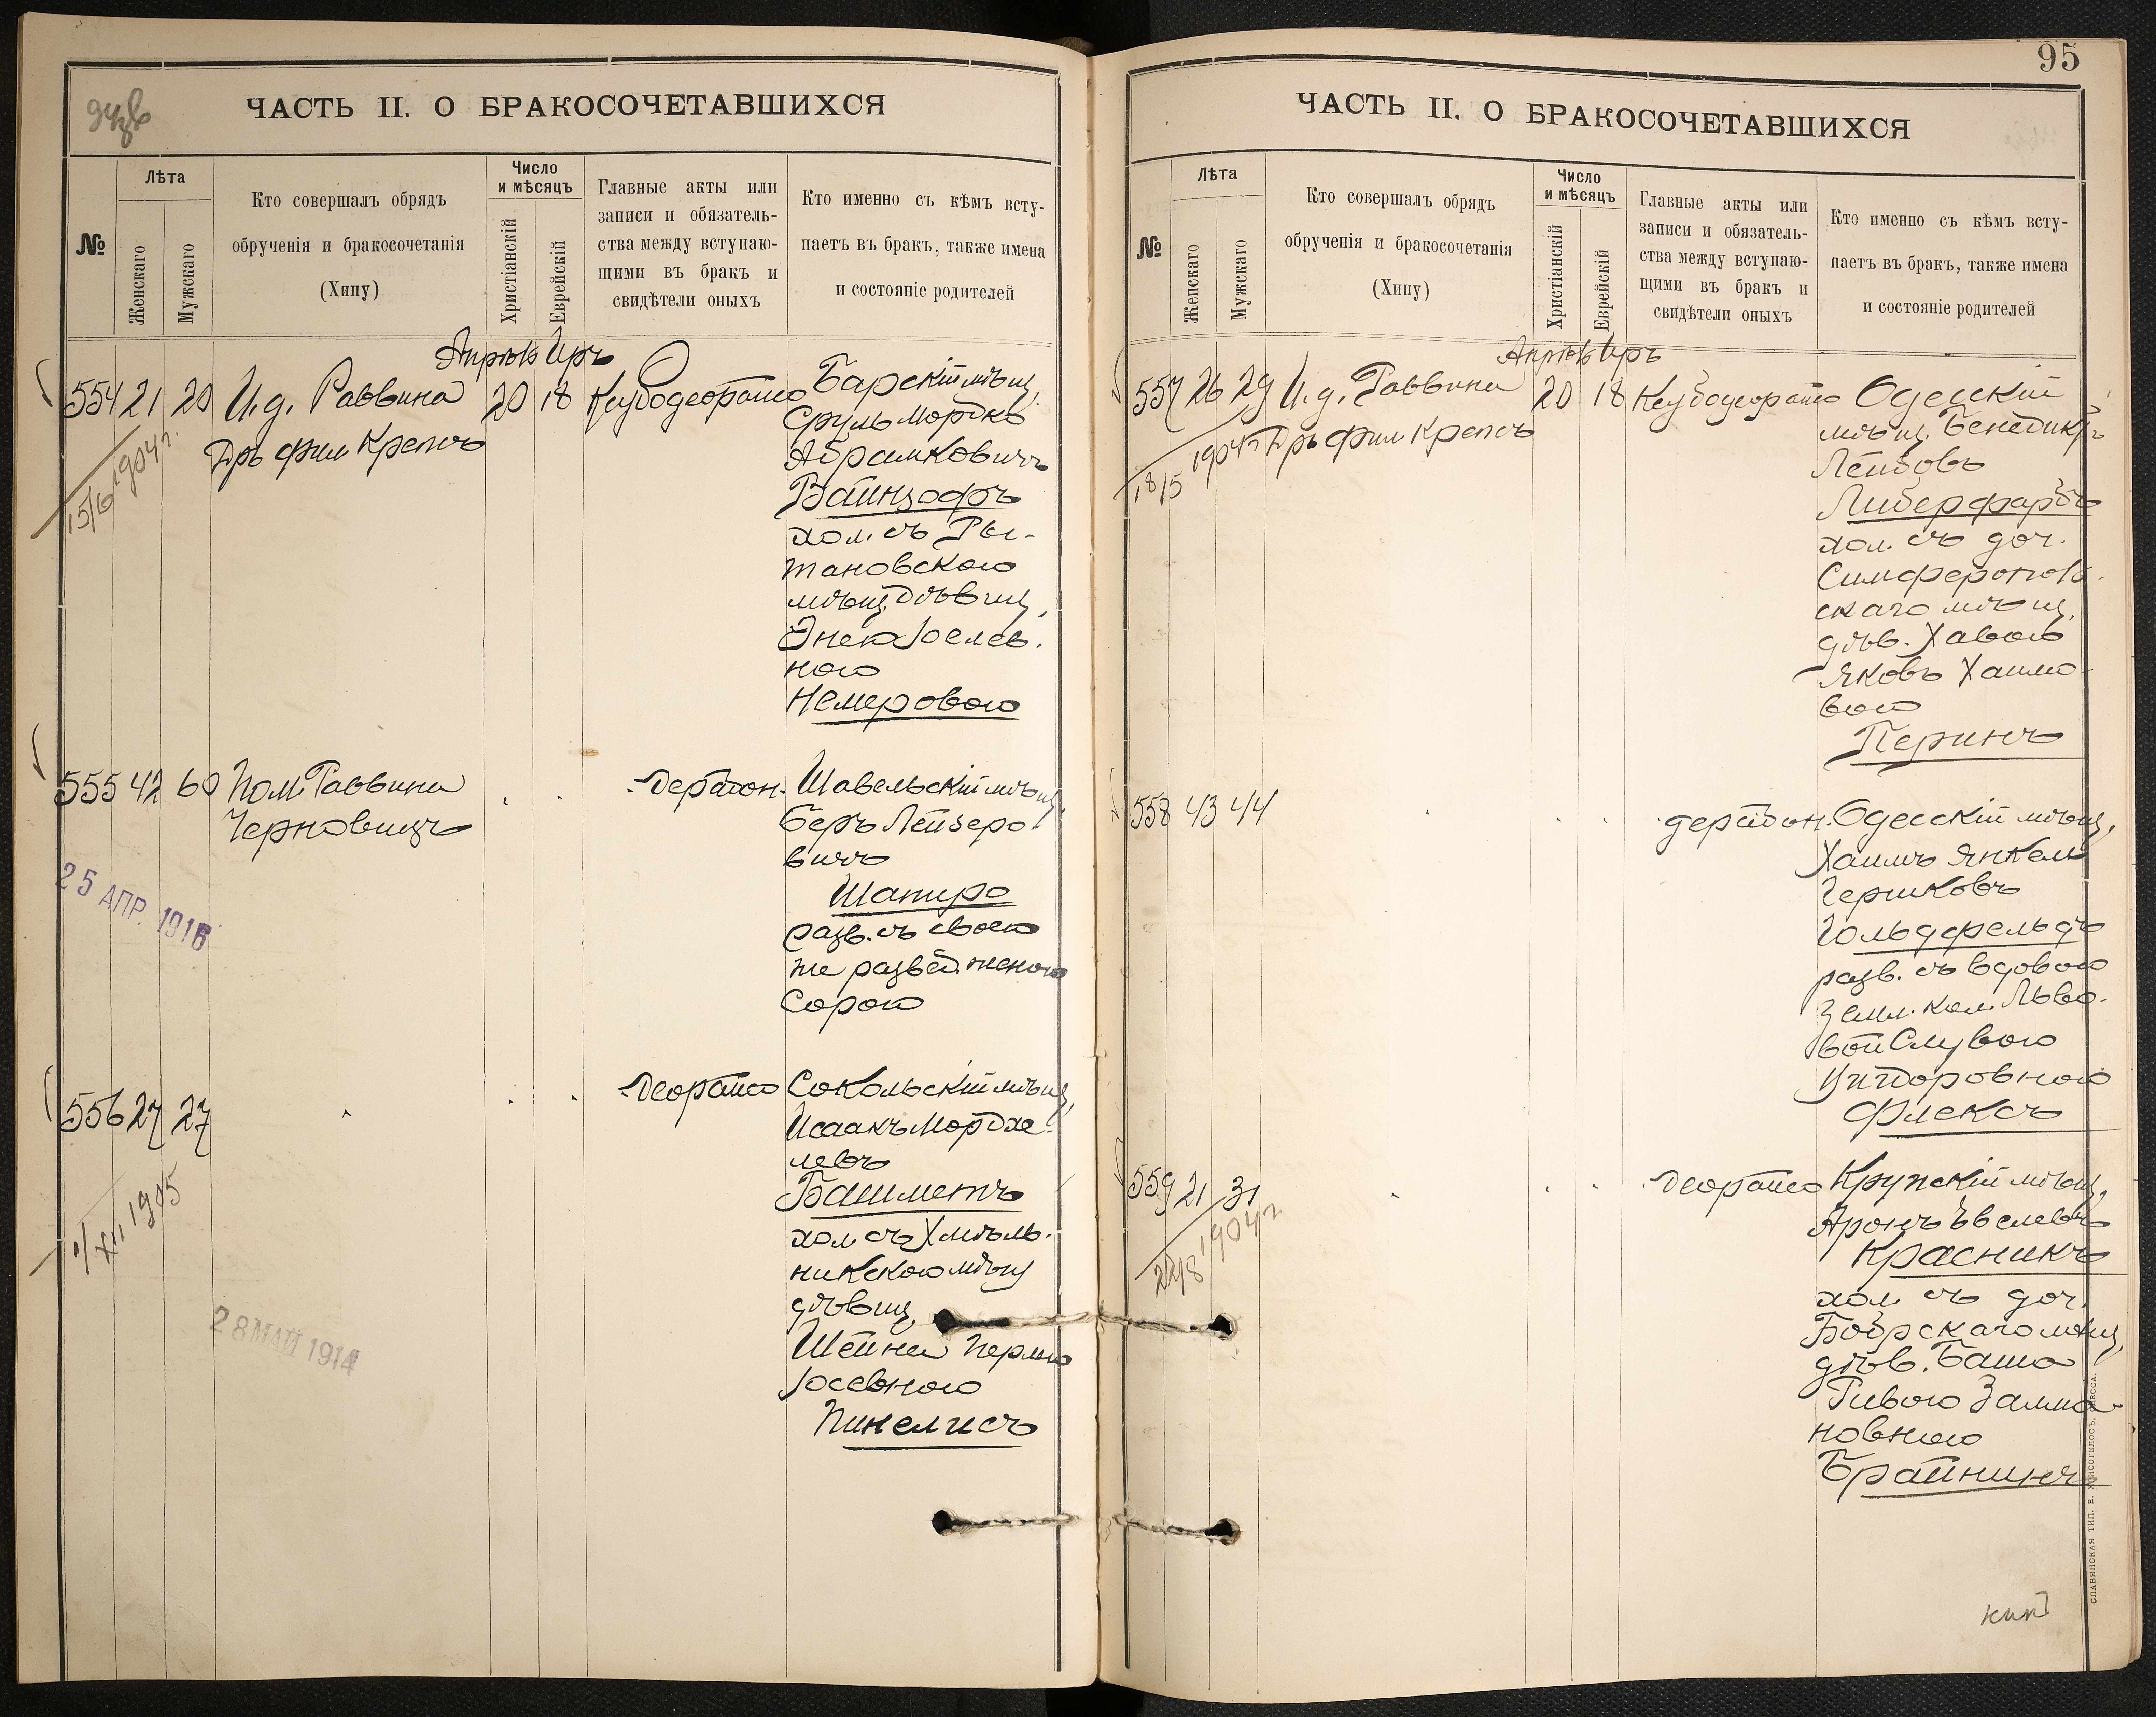 ЧАСТЬ II. О БРАКОСОЧЕТАВШИХСЯ
№
Лѣта
Женскаго
Мужскаго
Кто совершалъ обрядъ
обрученія и бракосочетанія
(Хипу)
Число
и мѣсяцъ
Христіанскій
Еврейскій
Главные акты или
записи и обязатель-
ства между вступаю-
щими въ бракъ и
свидѣтели оныхъ
Кто именно съ кѣмъ всту-
паетъ въ бракъ, также имена
и состояніе родителей
Апрѣль Иръ
554 21 20 И.д. Раввина 20 18
Дръ фил Крепсъ
1904 г.
15/6
Барскій мѣщ.
Сруль Мордко
Абрамковичъ
Вайнзофъ
хол. съ Ры-
тановскою
мѣщ. дѣвиц.
Энею Іоелев-
ною
Немеровою
555 42 60 Пом. Раввина
Черновицъ
25 АПР. 1916
Шавельскій мѣщ.
Беръ Лейзеро-
вичъ
Шапиро
разв. съ своею
же развед. женою
Сорою
556 27 27
1/XII 1905
28 МАЙ 1914
Сокольскій мѣщ.
Исаакъ Мордхе-
левъ
Башметъ
хол. съ Хмѣль-
никскою мѣщ.
дѣвиц.
Шейнею Перлею
Іосевною
Пинелисъ
95
ЧАСТЬ II. О БРАКОСОЧЕТАВШИХСЯ
№
Лѣта
Женскаго
Мужскаго
Кто совершалъ обрядъ
обрученія и бракосочетанія
(Хипу)
Число
и мѣсяцъ
Христіанскій
Еврейскій
Главные акты или
записи и обязатель-
ства между вступаю-
щими въ бракъ и
свидѣтели оныхъ
Кто именно съ кѣмъ всту-
паетъ въ бракъ, также имена
и состояніе родителей
Апрѣль Иръ
557 26 29 И.д. Раввина 20 18
Дръ фил Крепсъ
1904 г.
18/5
Одесскій
мѣщ. Бенедиктъ
Лейбовъ
Либерфарбъ
хол. съ доч.
Симферополь-
скаго мѣщ.
дѣв. Хавою
Яковъ Хаимо-
вою
Перинъ
558 43 44
Одесскій мѣщ.
Хаимъ Янкель
Гершковъ
Гольдфельдъ
разв. съ вдовою
Земл. кол. Льво-
вой Слувою
Уишоровною
Флексъ
559 21 31
1904 г.
22/8
Крупскій мѣщ.
Аронъ Эвелевъ
Красникъ
хол. съ доч.
Бобрскаго мѣщ.
дѣв. Башо
Ривою Залма-
новною
Брайнинъ
СЛАВЯНСКАЯ ТИП. Е. ХРИСОГЕЛОСЪ, ОДЕССА.